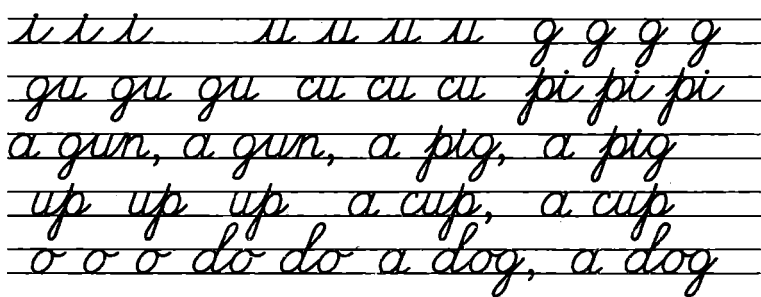 i i i u u u u g g g g
gu gu gu cu cu cu pi pi pi
a gun, a gun, a pig, a pig
up up up a cup, a cup
o o o do do a dog, a dog